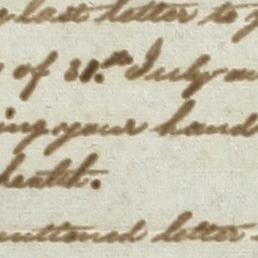 last letter to
of 31.st July
ing your hand
health.
mentioned letter